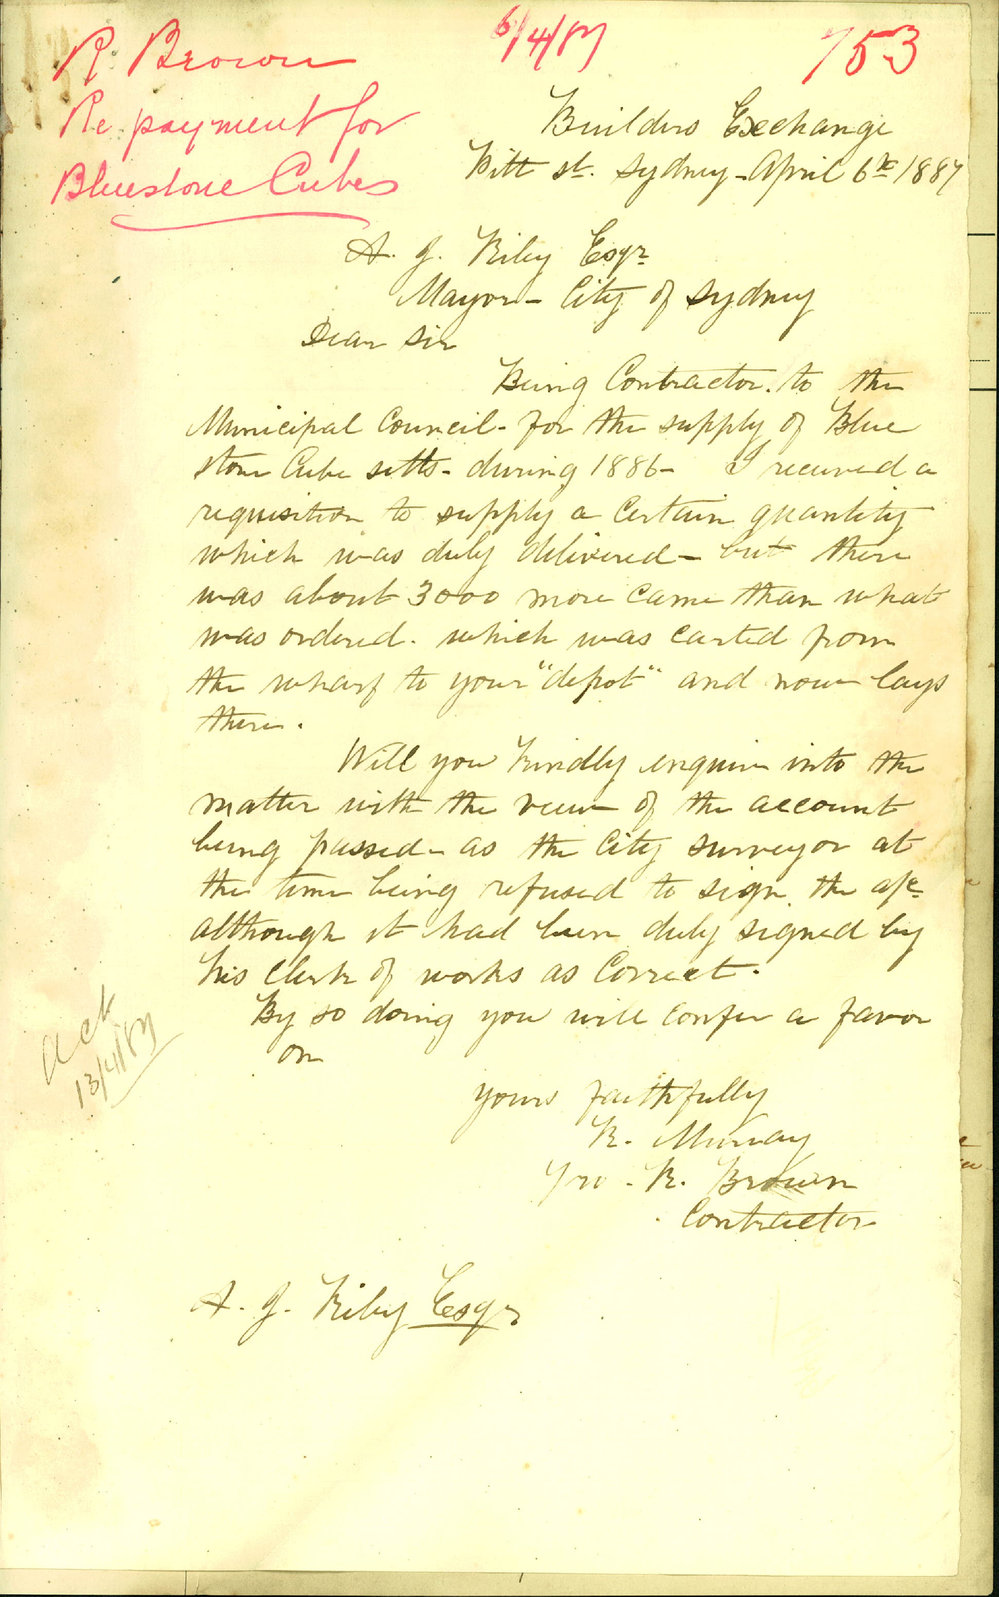 R. Brown
Re payment for
Bluestone Cubes
6/4/87
753
Builders Exchange
Pitt st. Sydney - April 6th 1887
A. J. Riley Esqr
Mayor - City of Sydney
Dear Sir
Being Contractor. to the
Municipal Council - for the supply of Blue
stone Cube setts - during 1886 - I received a
requisition to supply a certain quantity
which was duly delivered - but there
was about 3000 more came than what
was ordered. which was carted from
the wharf to your "depot" and now lays
there.
Will you kindly enquire into the
matter with the view of the account
being passed - as the City surveyor at
the time being refused to sign the a/c
although it had been duly signed by
his Clerk of works as Correct.
By so doing you will confer a favor
on
yours faithfully
R. Murray
pro. R. Brown
Contractor
A. J. Riley Esqr
ack
13/4/87